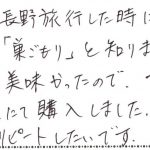 長野旅行した時に
「巣ごもり」と知りま
美味かったので、
にて購入しました.
リピートしたいです.